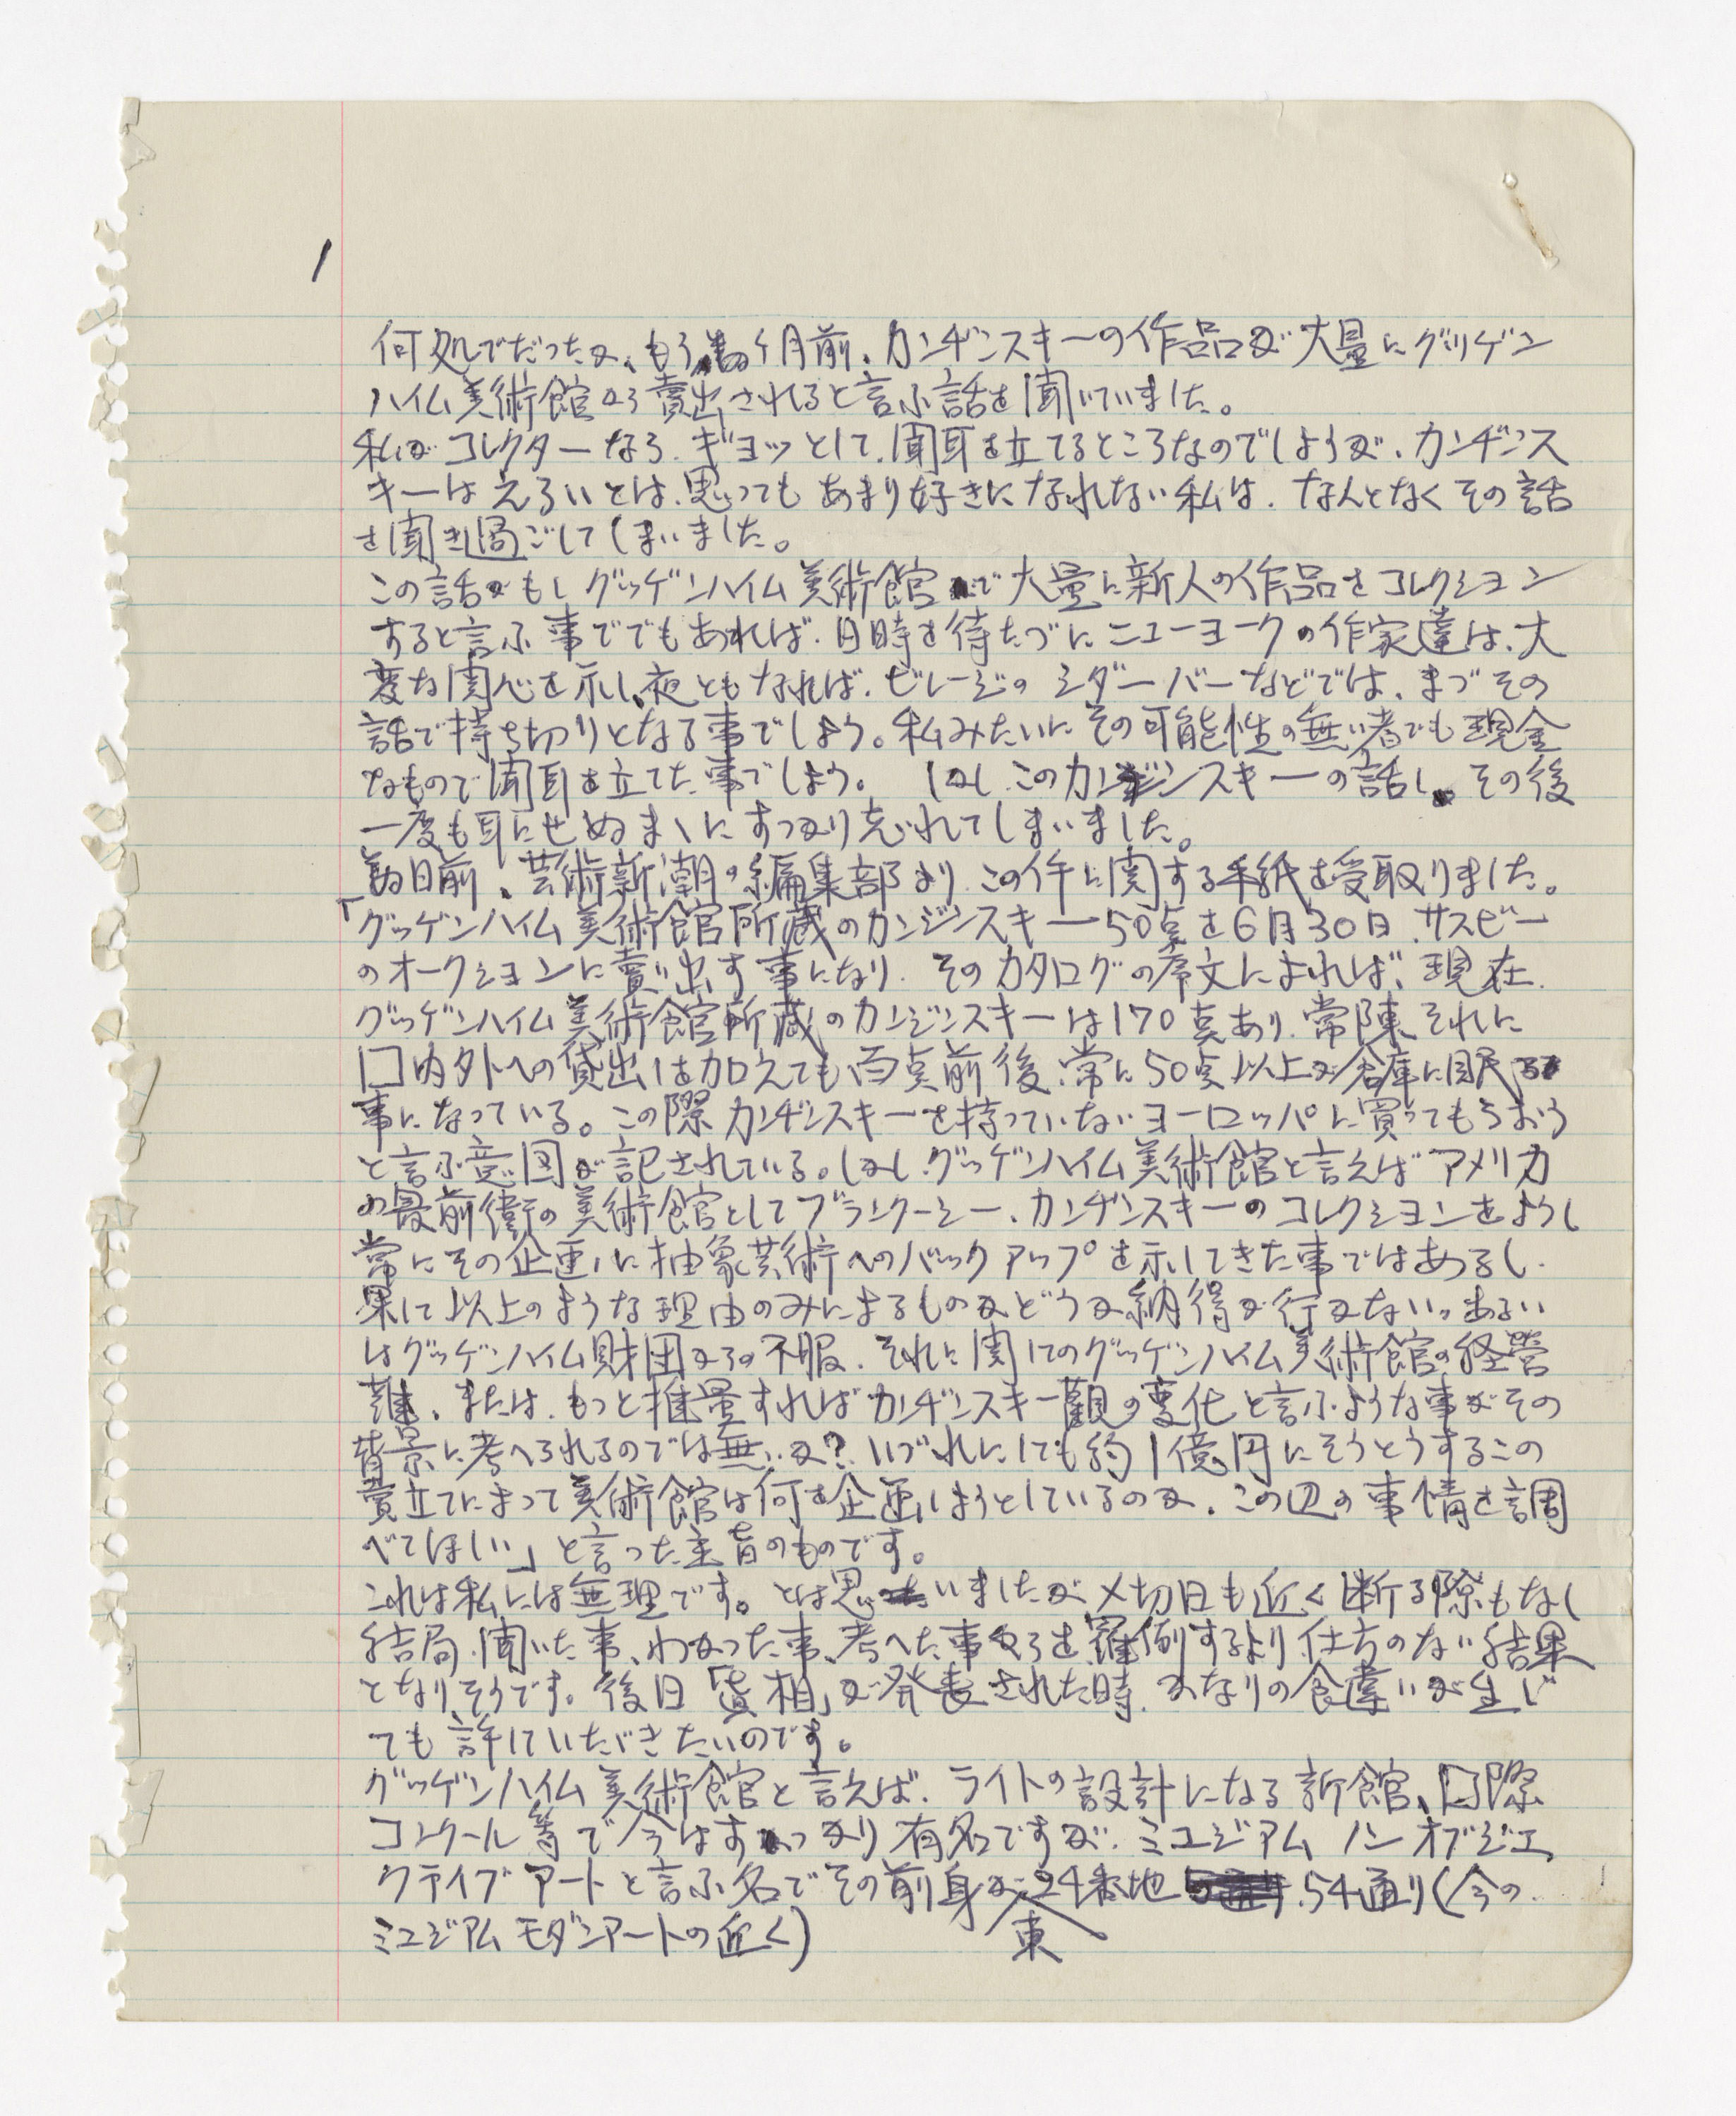 1
何処でだったか、もう数ヶ月前、カンヂンスキーの作品が大量にグッゲン
ハイム美術館から賣出されると言ふ話を聞いていました。
私がコレクターなら、ギョッとして、聞耳を立てるところなのでしようが、カンヂンス
キーはえらいとは、思ってもあまり好きになれない私は、なんとなくその話
を聞き過ごしてしまいました。
この話がもしグッゲンハイム美術館で大量に新人の作品をコレクション
すると言ふ事ででもあれば、日時を待たづにニューヨークの作家達は、大
変な関心を示し、夜ともなれば、ビレージのシダーバーなどでは、まづその
話で持ち切りとなる事でしよう。私みたいにその可能性の無い者でも現金
なもので聞耳を立てた事でしよう。 しかし、このカンヂンスキーの話し、その後
一度も耳にせぬまゝにすっかり忘れてしまいました。
数日前、芸術新潮の編集部より、この件に関する手紙を受取りました。
「グッゲンハイム美術館所蔵のカンジンスキー50点を6月30日、サスビー
のオークションに賣り出す事になり、そのカタログの序文によれば、現在、
グッゲンハイム美術館所蔵のカンジンスキーは170点あり、常陳それに
囗内外への貸出しは加えても百点前後、常に50点以上が倉庫に眠る
事になっている。この際カンヂンスキーを持っていないヨーロッパに買ってもらおう
と言ふ意図が記されている。しかし、グッゲンハイム美術館と言えばアメリカ
の最前衛の美術館としてブランクーシー、カンヂンスキーのコレクションをようし
常にその企画に抽象芸術へのバックアップを示してきた事ではあるし、
果して以上のような理由のみによるものかどうか納得が行かない。あるい
はグッゲンハイム財団からの不服、それに関してのグッゲンハイム美術館の経営
難、または、もっと推量すればカンヂンスキー観の変化と言ふような事がその
背景に考へられるのでは無いか?いづれにしても約1億円にそうとうするこの
賣立てによって美術館は何を企画しようとしているのか、この辺の事情を調
べてほしい」と言った主旨のものです。
これは私には無理です。とは思いましたが〆切日も近く断る際もなし
結局、聞いた事、わかった事、考へた事からを羅列するより仕方のない結果
となりそうです。後日「真相」が発表された時、かなりの食違いが生じ
ても許していただきたいのです。
グッゲンハイム美術館と言えば、ライトの設計になる新館、囗際
コンクール等で今はすっかり有名ですが、ミュジアム ノン オブジェ
クティブ アートと言ふ名でその前身が東24番地 54通り(今の
ミュジアム モダンアートの近く)